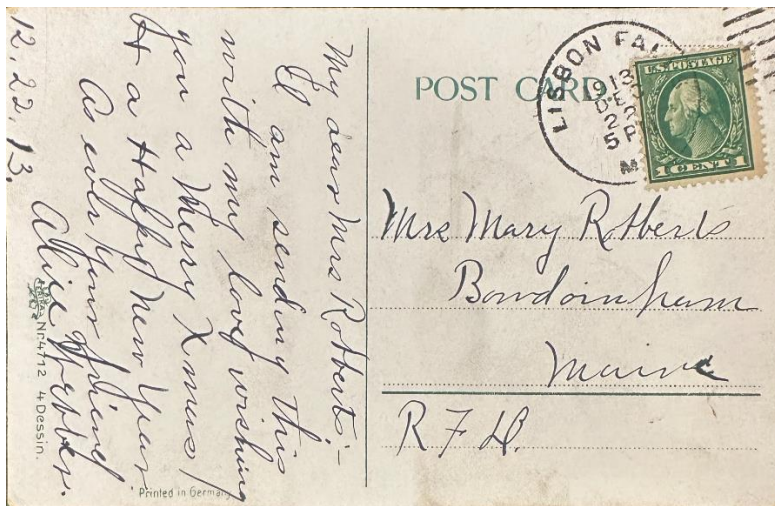 12, 22, 13,
My dear Mrs Rotberts:-
I am sending this
with my love wishing
you a Merry Xmas
& a Happy New Year
As ever your friend
Alice Webber.
Nr. 4712 4 Dessin.
Printed in Germany
POST CARD
LISBON FAL
1913
DEC
5 P
M
U.S. POSTAGE
1 CENT 1
Mrs Mary Rotberts
Bowdoinham
Maine
R F D.